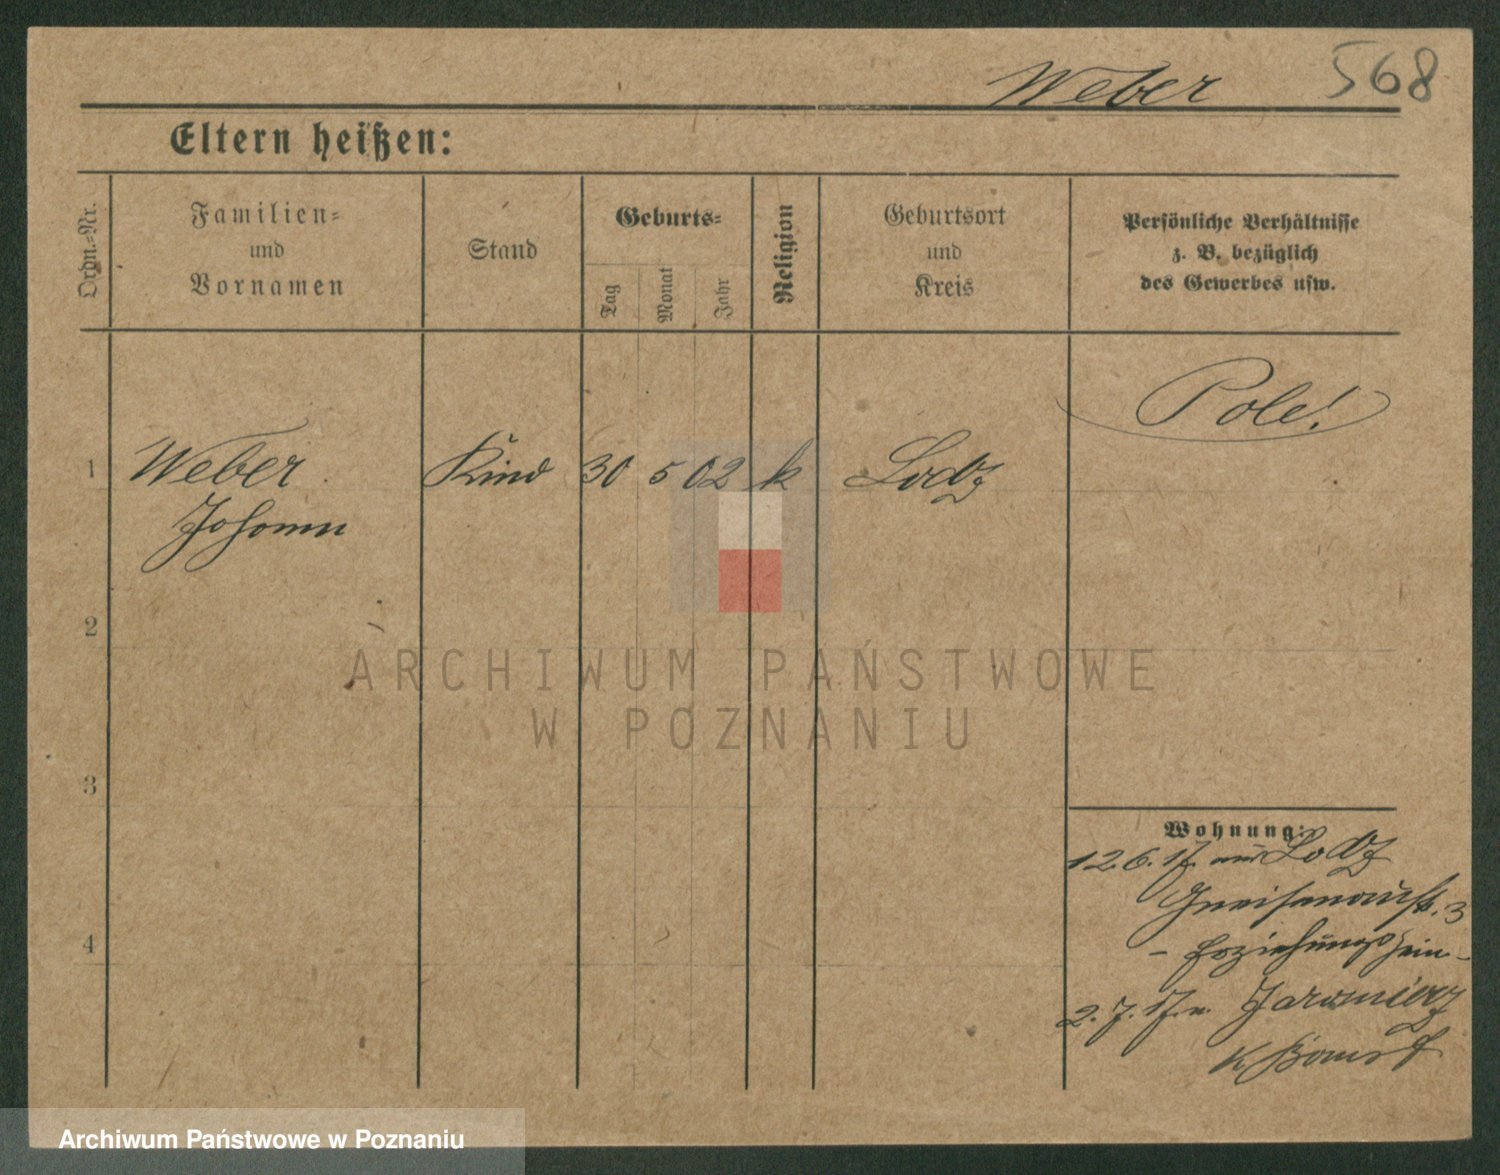 Weber 568
Eltern heißen:
Ordn.-Nr.
Familien-
und
Vornamen
Stand
Geburts-
Tag
Monat
Jahr
Religion
Geburtsort
und
Kreis
Persönliche Verhältnisse
z. B. bezüglich
des Gewerbes usw.
Pole!
1 Weber Kind 30 5 02 k Lodz
Johann
2
ARCHIWUM PAŃSTWOWE
W POZNANIU
3
Wohnung:
12.6.17. aus Lodz
Gneisenaustr. 3
- Erziehungsheim -
2.7.17. n. Jaromierz
K Bomst
4
Archiwum Państwowe w Poznaniu